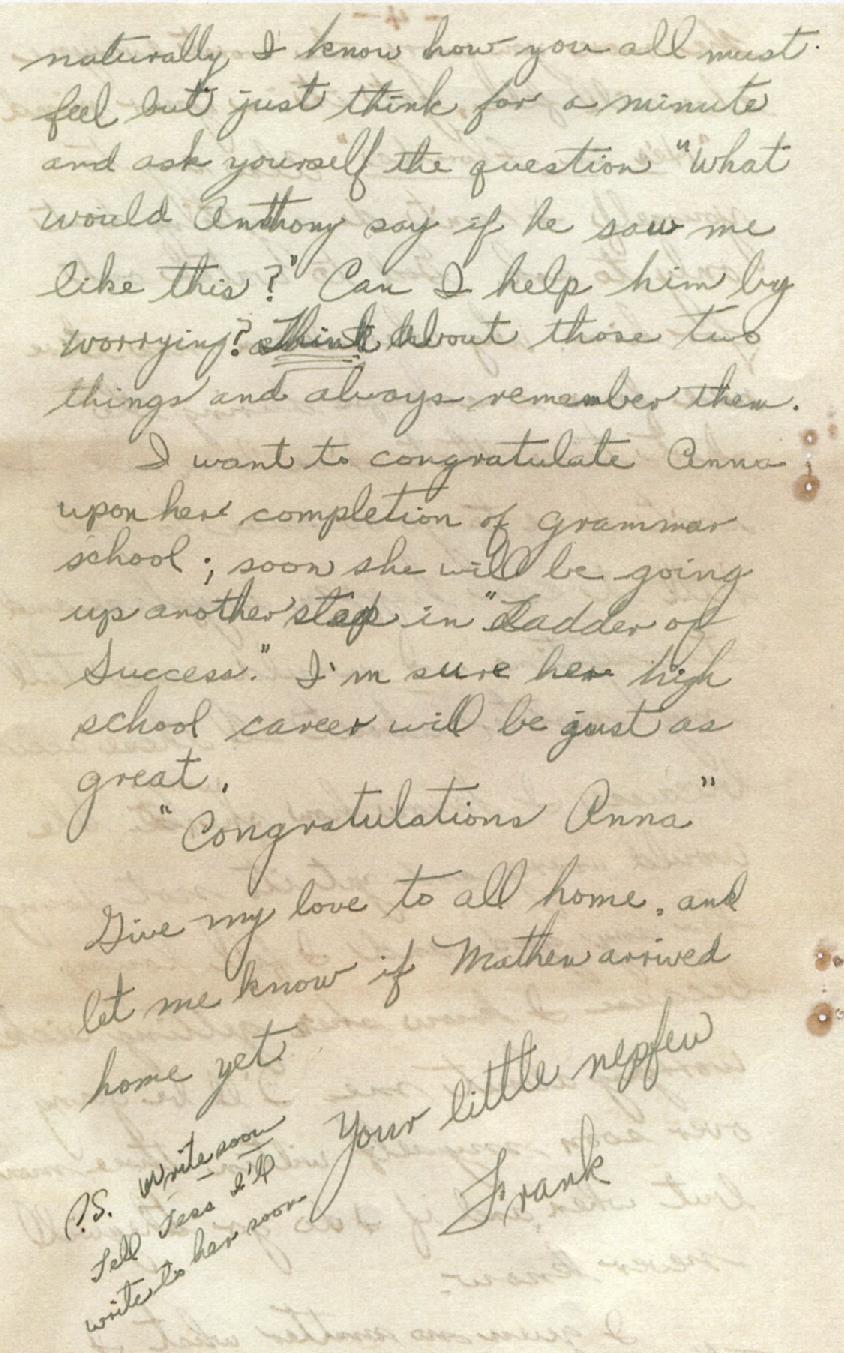 - 4 -
naturally I know how you all must
feel but just think for a minute
and ask yourself the question "What
would Anthony say if he saw me
like this?" Can I help him by
worrying? Think about those two
things and always remember them.
I want to congratulate Anna
upon her completion of grammar
school; soon she will be going
up another step in "Ladder of
Success." I'm sure her high
school career will be just as
great.
"Congratulations Anna"
Give my love to all home, and
let me know if Mathew arrived
home yet.
Your little nepfew
Frank
P.S. Write soon
Tell Tess I'll
write to her soon